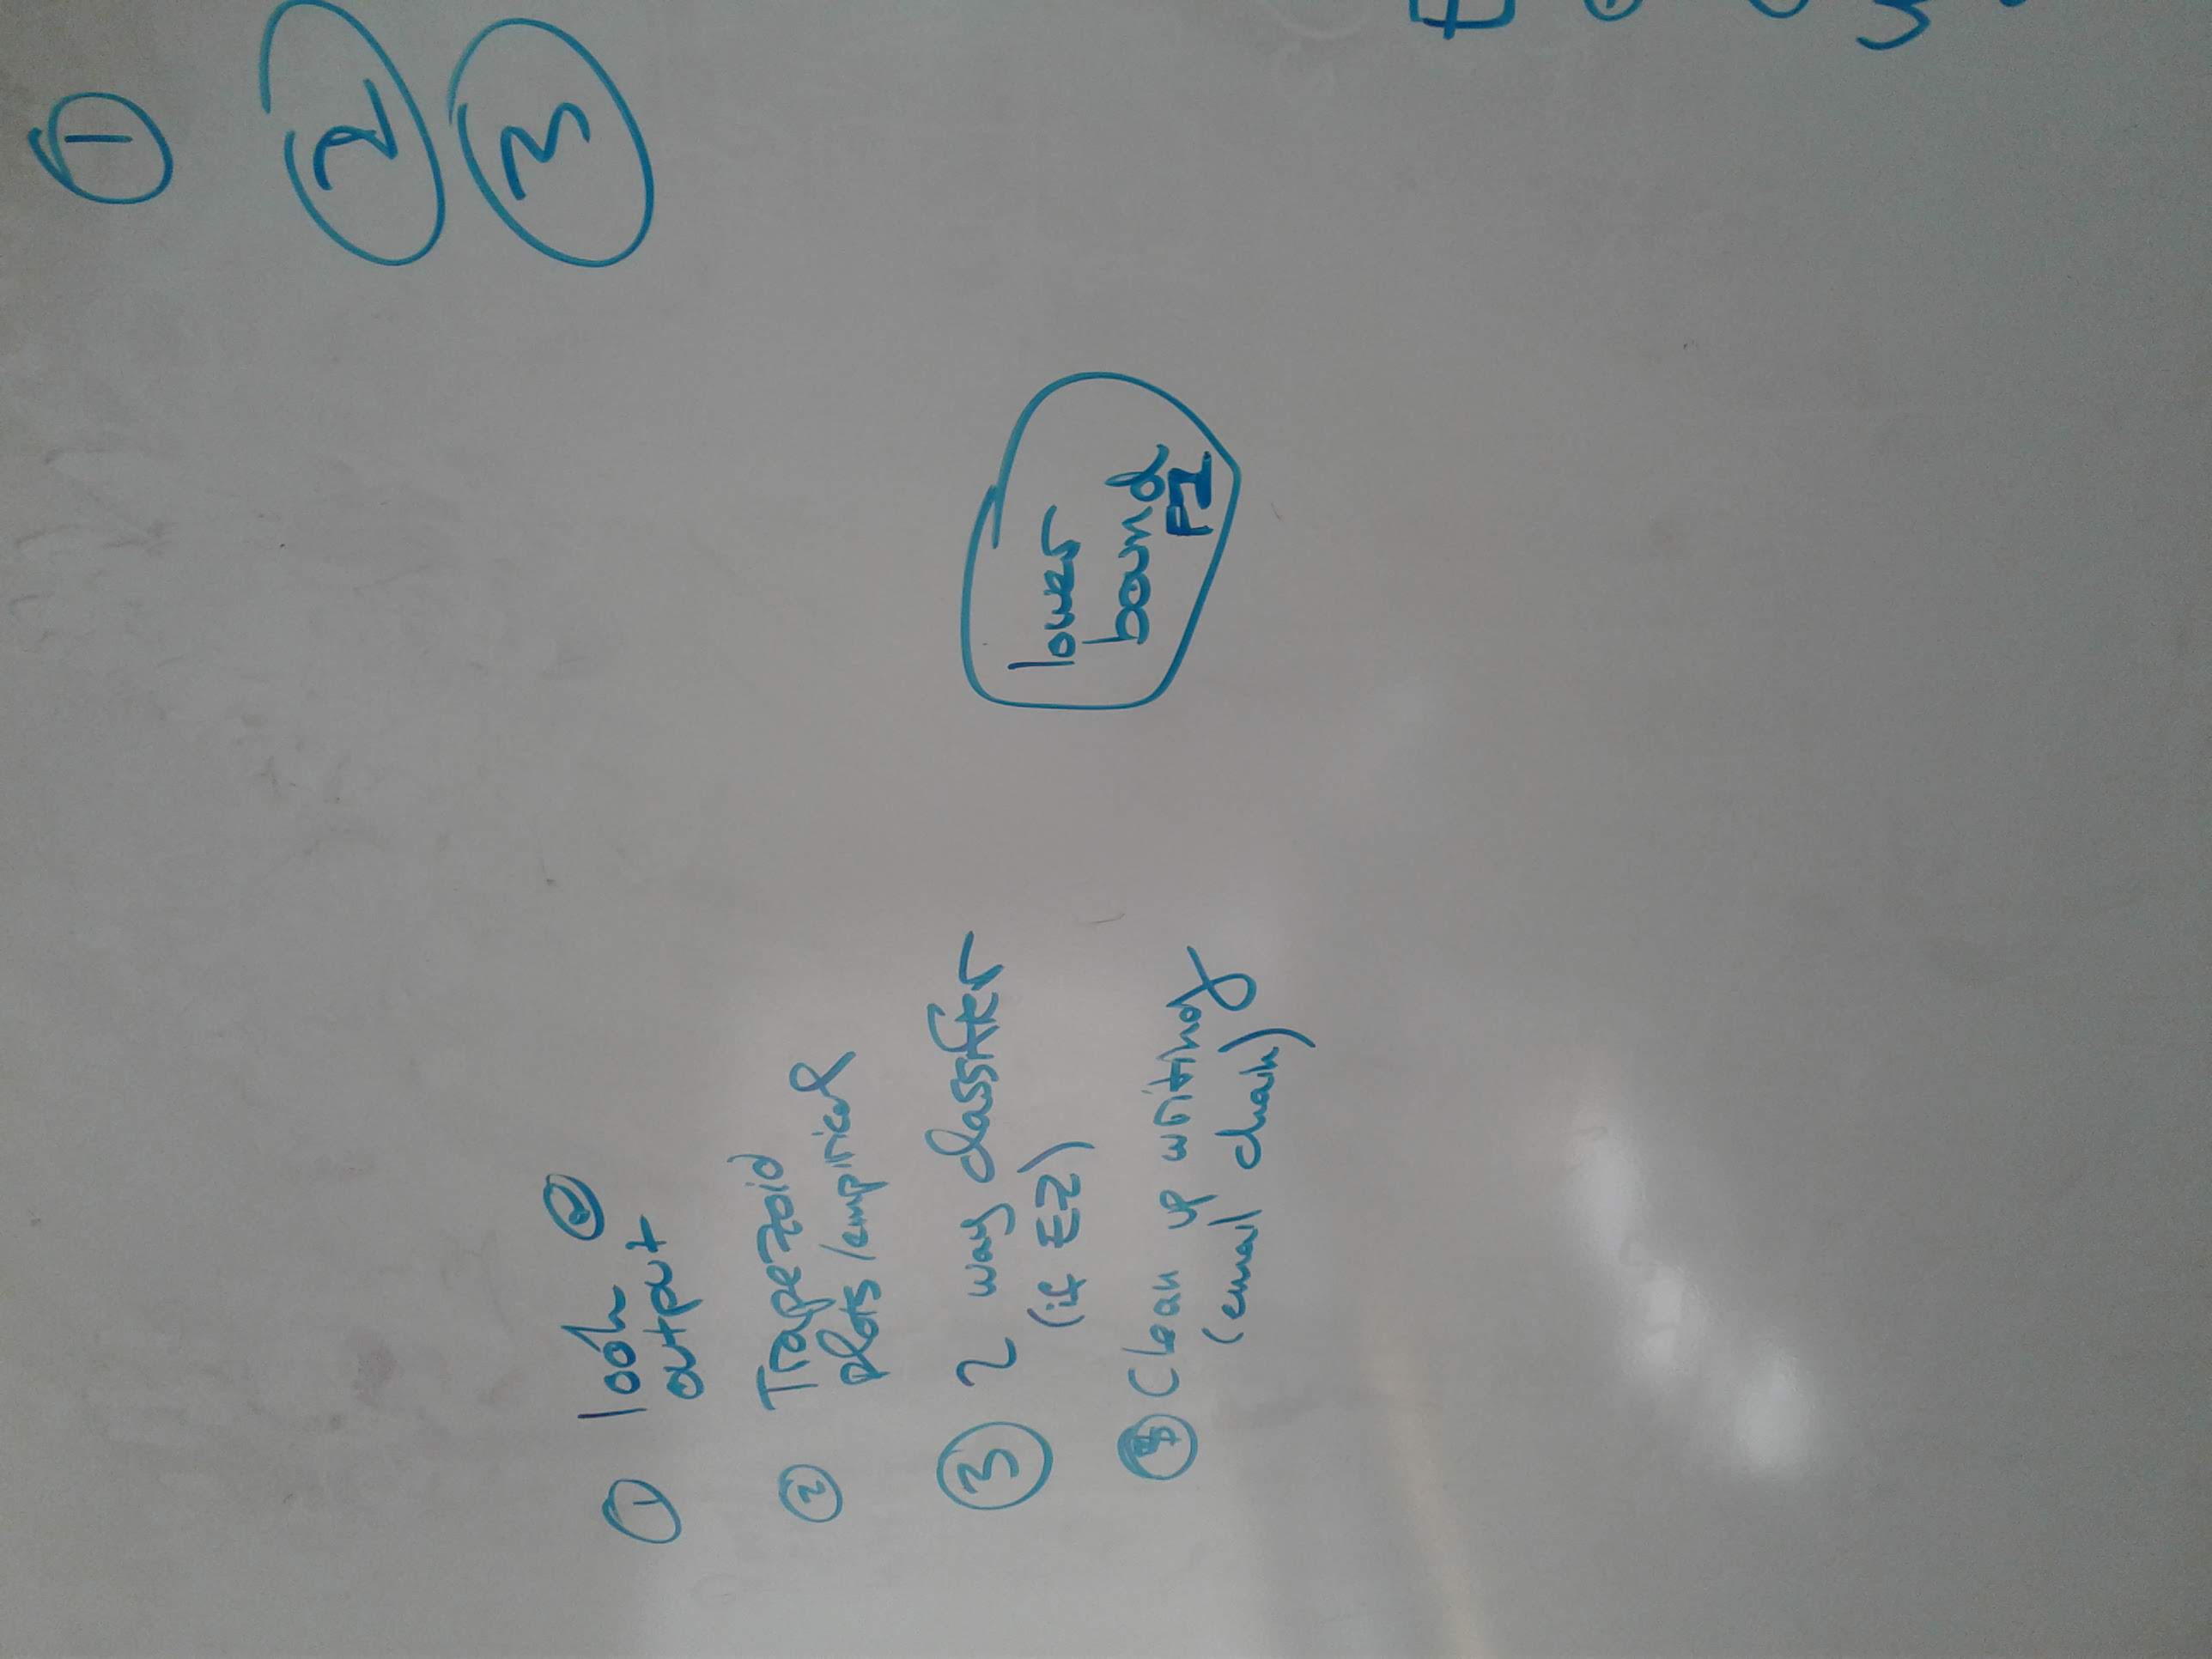 ① look @
output
② Trapezoid
plots/empirical
③ 2 way classifier
(if EZ)
Clean up writing
(email chain)
lower
bound
F1
①
②
③